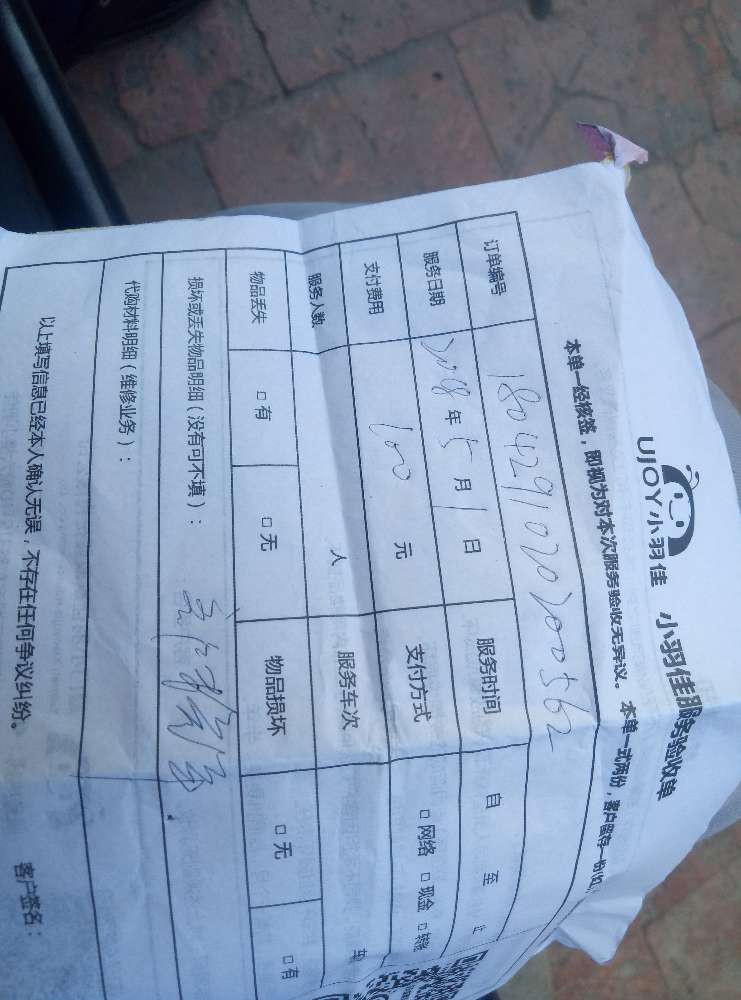 UJOY小羽佳 小羽佳服务验收单
本单一经核签，即视为对本次服务验收无异议。本单一式两份，客户留存一份
订单编号 180429102020000562
服务日期 2018年5月1日 服务时间 自 至 止
支付费用 100元 支付方式 □网络 □现金 □转账
服务人数 人 服务车次 车
物品丢失 □有 □无 物品损坏 □无 □有
损坏或丢失物品明细（没有可不填）：
代购材料明细（维修业务）：
以上填写信息已经本人确认无误，不存在任何争议纠纷。 客户签名：